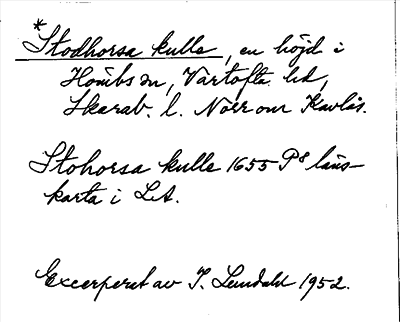 *Stodhorsa kulle, en höjd i
Hömbs sn, Vartofta hd,
Skarab. l. Norr om Kavlås.
Stohorsa kulle 1655 P⁸ läns-
karta i LA.
Excerperat av I. Lundahl 1952.